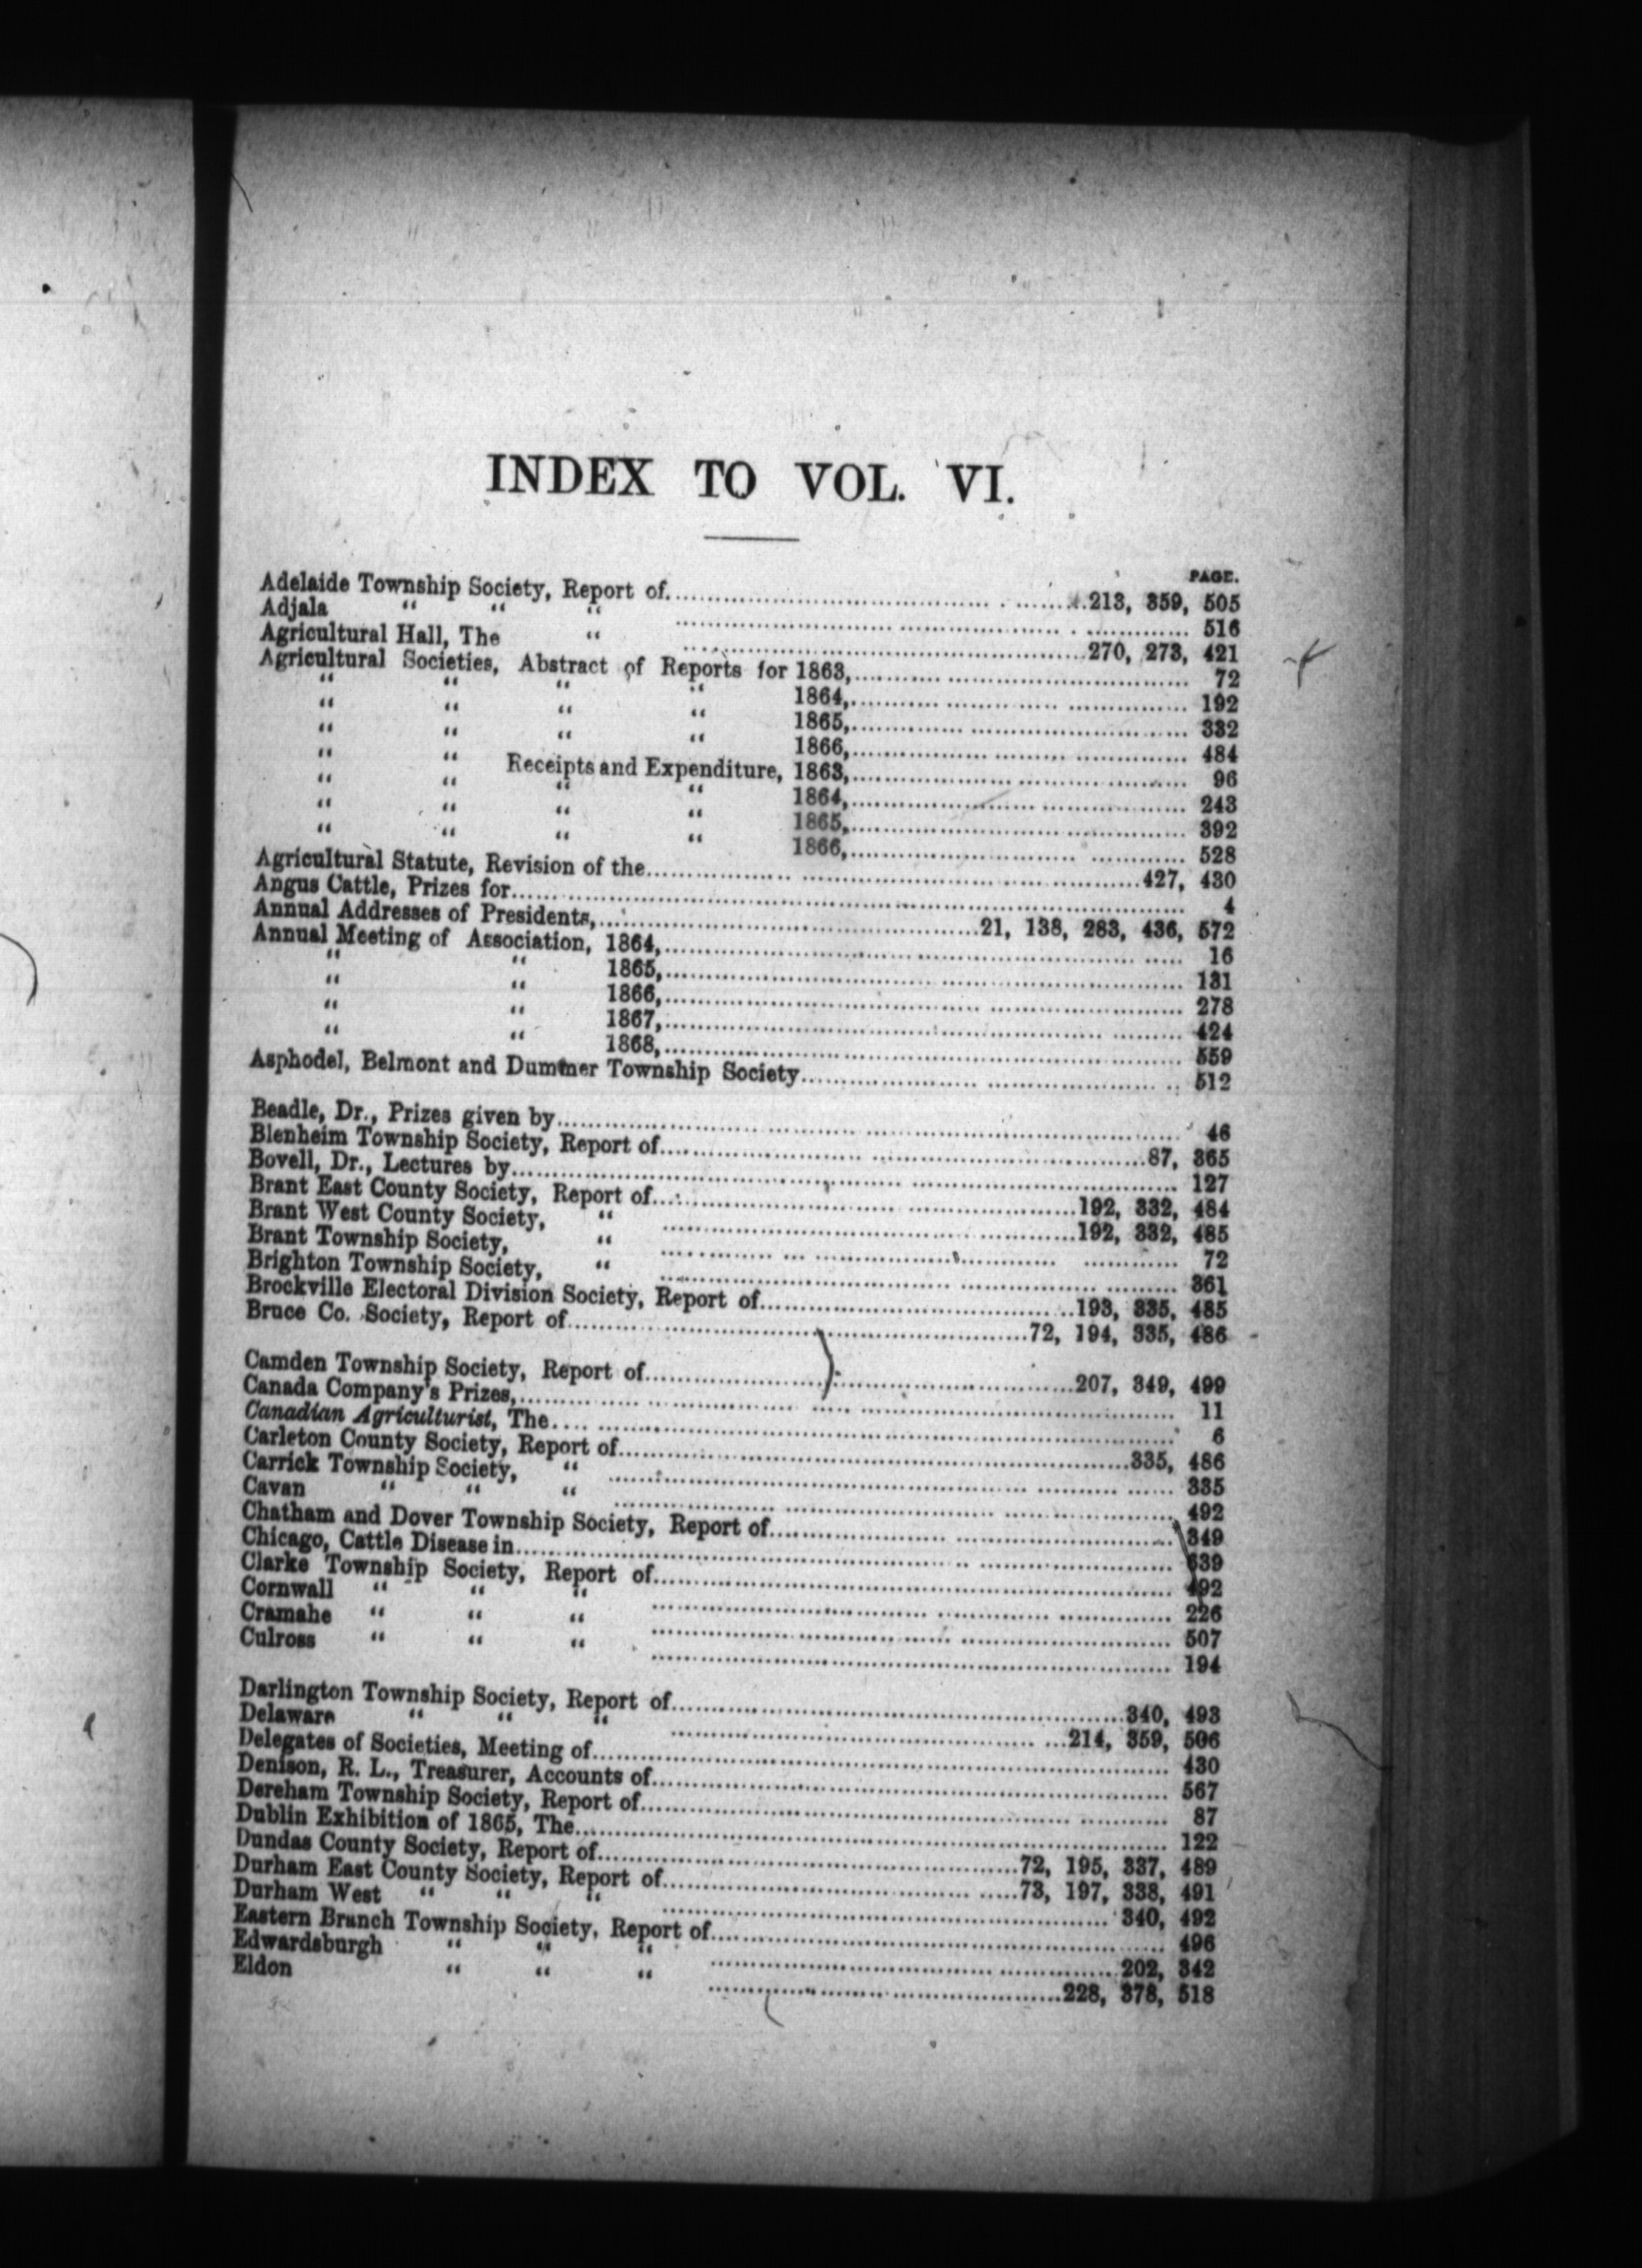 INDEX TO VOL. VI.
PAGE.
Adelaide Township Society, Report of. 213, 359, 505
Adjala “ “ “ 516
Agricultural Hall, The “ 270, 273, 421
Agricultural Societies, Abstract of Reports for 1863, 72
“ “ “ “ 1864, 192
“ “ “ “ 1865, 332
“ “ “ “ 1866, 484
“ “ Receipts and Expenditure, 1863, 96
“ “ “ “ 1864, 243
“ “ “ “ 1865, 392
“ “ “ “ 1866, 528
Agricultural Statute, Revision of the 427, 430
Angus Cattle, Prizes for 4
Annual Addresses of Presidents, 21, 138, 283, 436, 572
Annual Meeting of Association, 1864, 16
“ “ 1865, 131
“ “ 1866, 278
“ “ 1867, 424
“ “ 1868, 559
Asphodel, Belmont and Dummer Township Society 512
Beadle, Dr., Prizes given by 46
Blenheim Township Society, Report of 87, 365
Bovell, Dr., Lectures by 127
Brant East County Society, Report of 192, 332, 484
Brant West County Society, “ 192, 332, 485
Brant Township Society, “ 72
Brighton Township Society, “ 361
Brockville Electoral Division Society, Report of 193, 335, 485
Bruce Co. Society, Report of 72, 194, 335, 486
Camden Township Society, Report of 207, 349, 499
Canada Company's Prizes, 11
Canadian Agriculturist, The 6
Carleton County Society, Report of 335, 486
Carrick Township Society, “ 335
Cavan “ “ “ 492
Chatham and Dover Township Society, Report of 349
Chicago, Cattle Disease in 639
Clarke Township Society, Report of 492
Cornwall “ “ “ 226
Cramahe “ “ “ 507
Culross “ “ “ 194
Darlington Township Society, Report of 340, 493
Delaware “ “ “ 214, 359, 506
Delegates of Societies, Meeting of 430
Denison, R. L., Treasurer, Accounts of 567
Dereham Township Society, Report of 87
Dublin Exhibition of 1865, The 122
Dundas County Society, Report of 72, 195, 337, 489
Durham East County Society, Report of 73, 197, 338, 491
Durham West “ “ “ 340, 492
Eastern Branch Township Society, Report of 496
Edwardsburgh “ “ “ 202, 342
Eldon “ “ “ 228, 378, 518